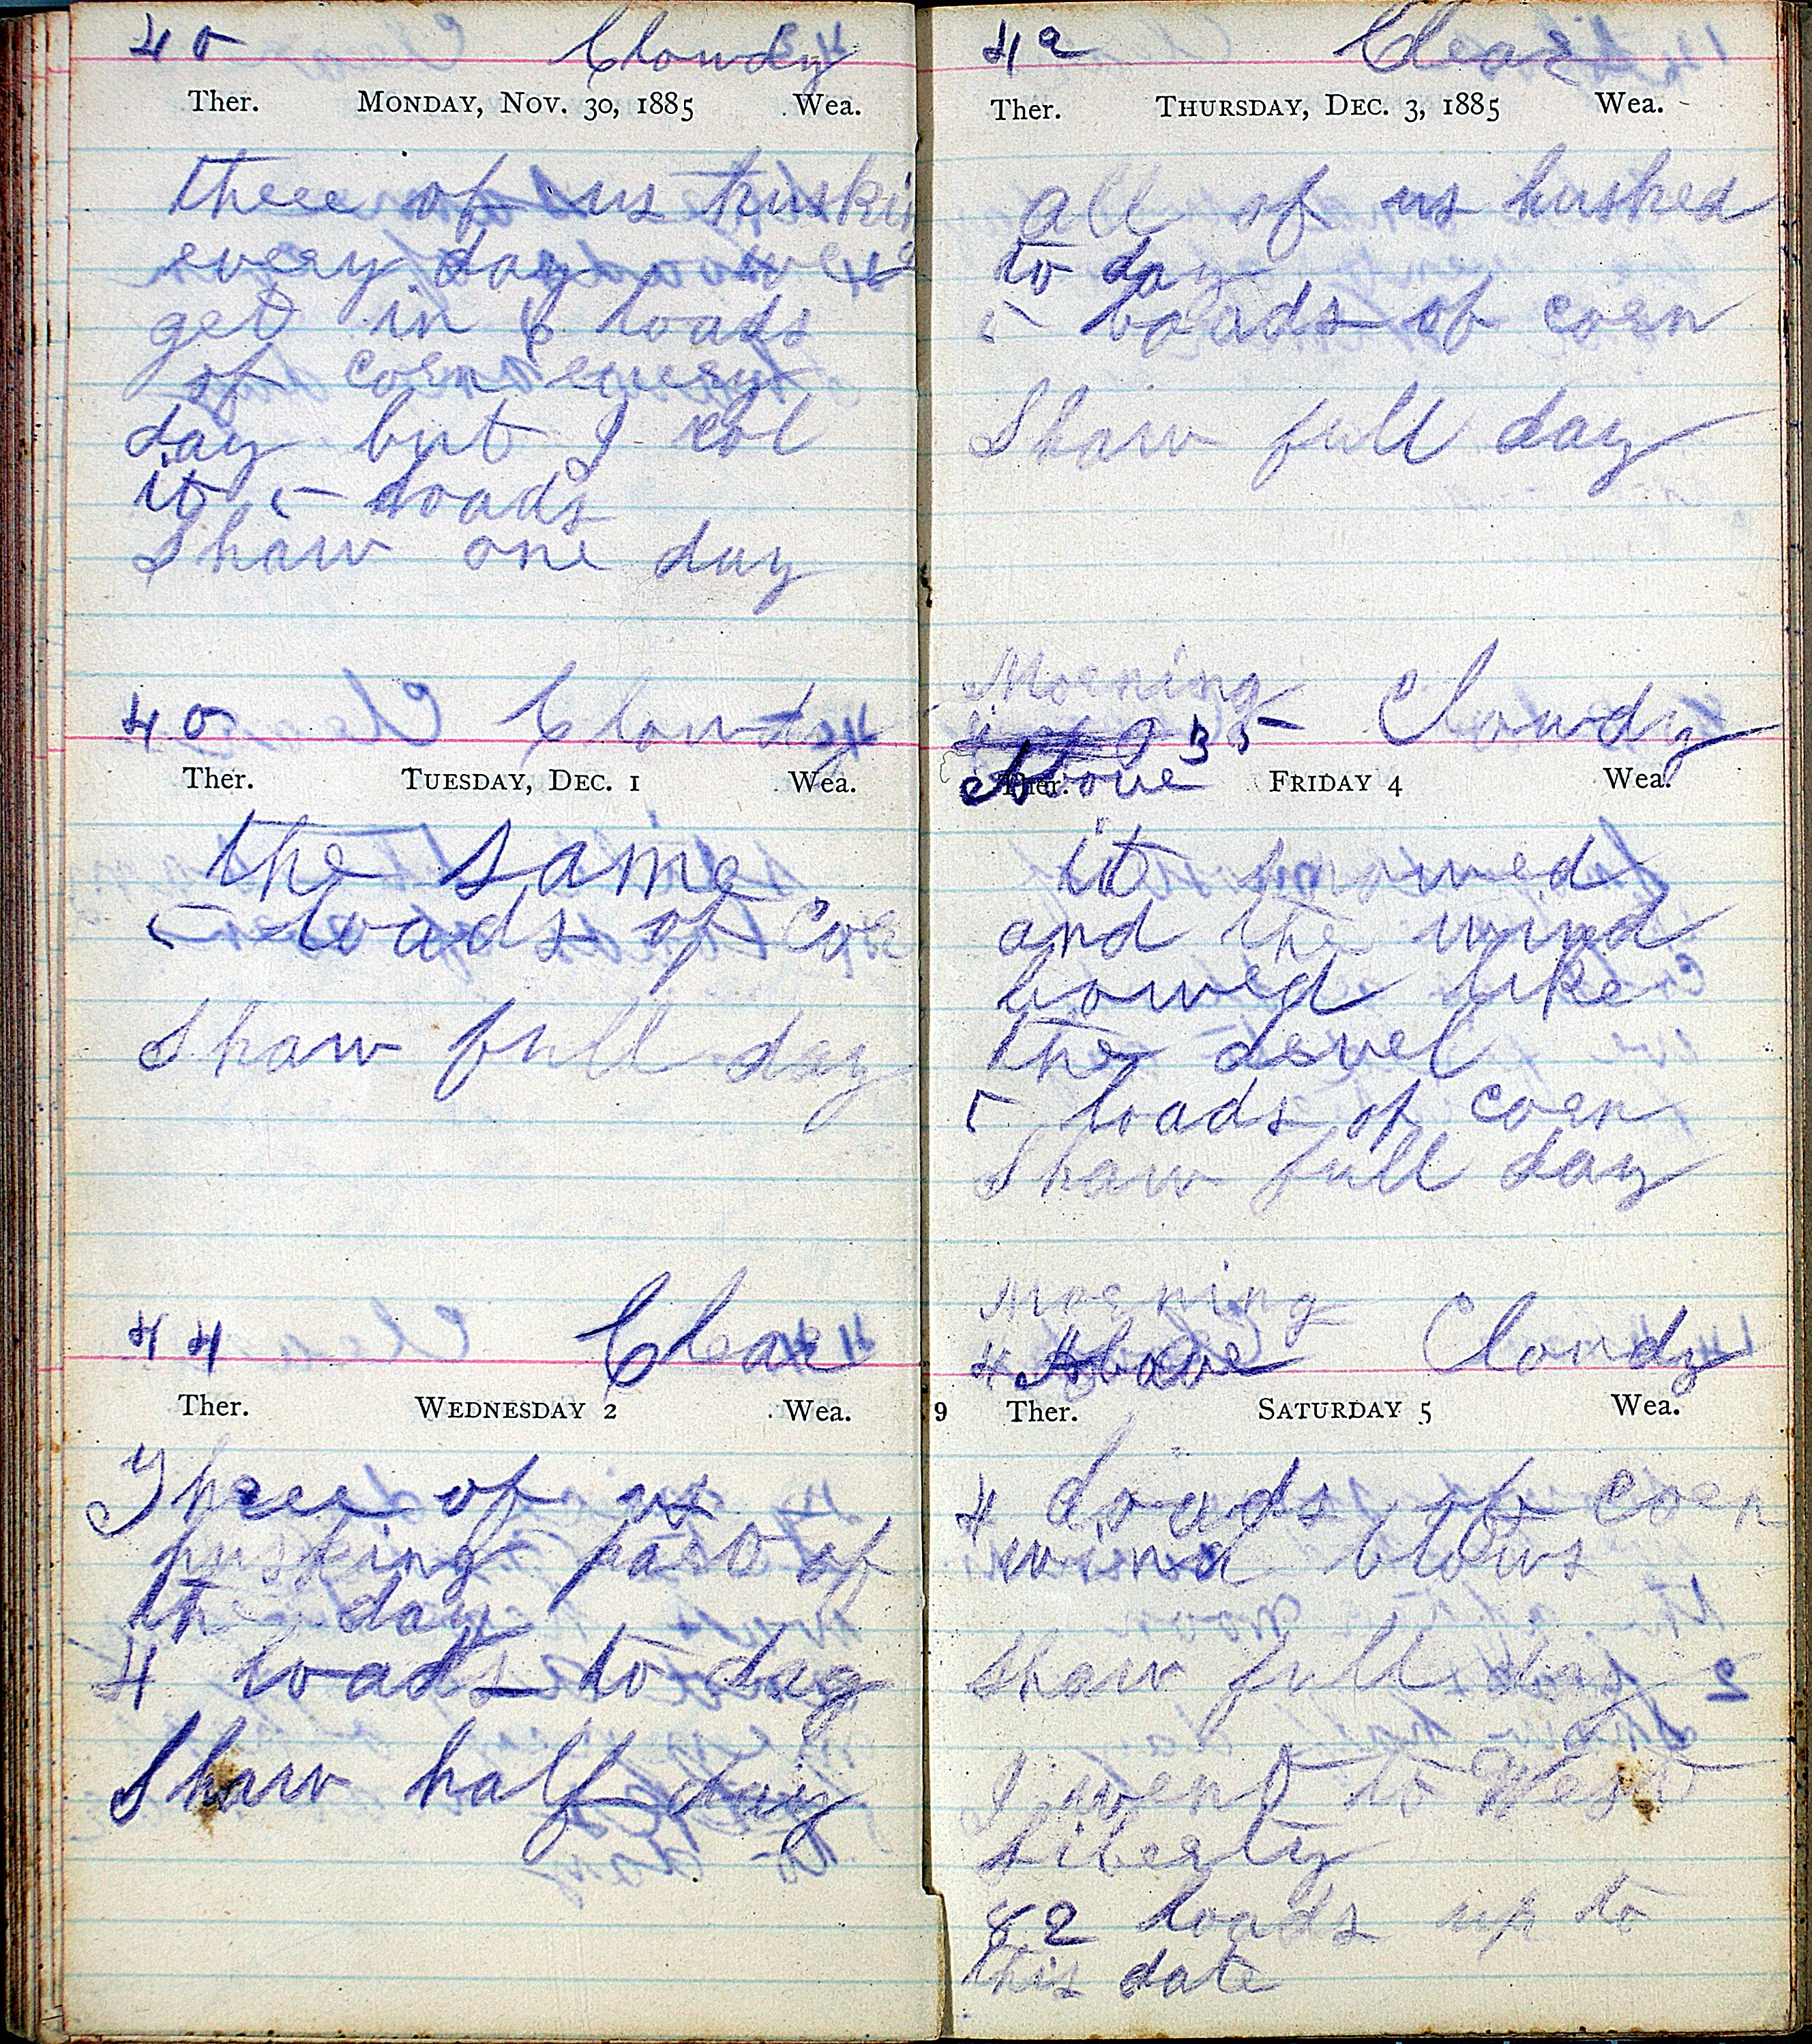 40 Clowdy
Ther. MONDAY, NOV. 30, 1885 Wea.
three of us huskin
every day we
get in 6 loads
of corn every
day but I col
it 5 loads
Shaw one day
40 Clowdy
Ther. TUESDAY, DEC. 1 Wea.
the same
5 loads of Cor
Shaw full day
44 Clear
Ther. WEDNESDAY 2 Wea.
Three of us
husking part of
the day
4 loads to day
Shaw half day
42 Clear
Ther. THURSDAY, DEC. 3, 1885 Wea.
all of us husked
to day
5 loads of corn
Shaw full day
Morning
35 Clowdy
Above
Ther. FRIDAY 4 Wea.
it snowed
and the wind
bowed like
the devel
5 loads of corn
Shaw full day
Morning
4 Above Cloudy
9 Ther. SATURDAY 5 Wea.
4 loads of corn
wind blows
Shaw full day
I went to West
Liberty
82 loads up to
this date